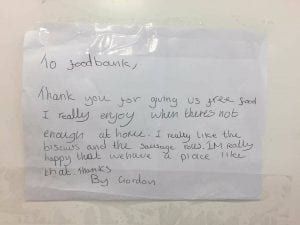 To foodbank,
Thank you for giving us free food
I really enjoy when theres not
enough at home. I really like the
biscuits and the sausage rolls. IM really
happy that we have a place like
that. thanks
By Gordon